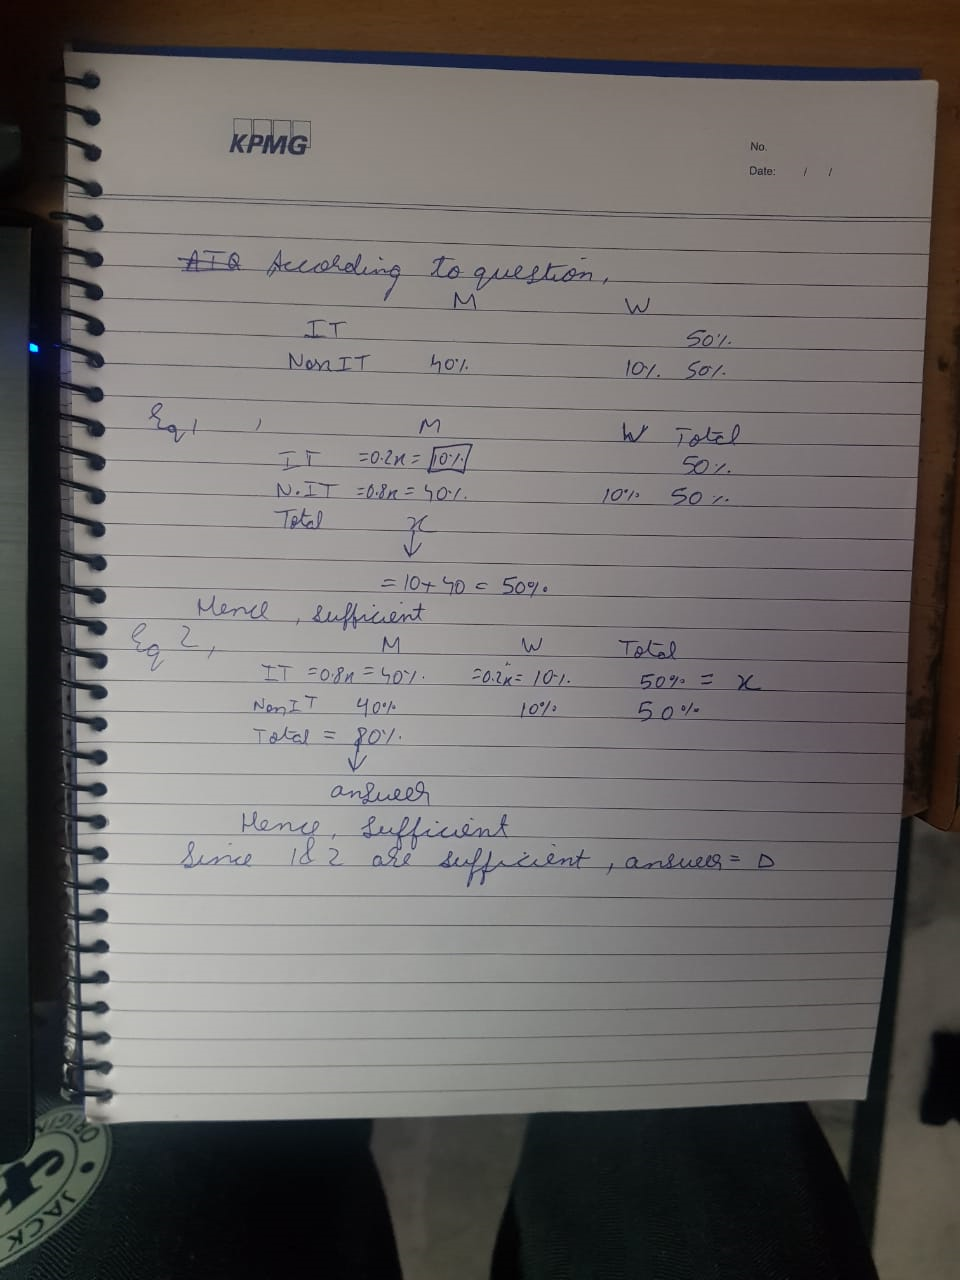 KPMG
No.
Date: / /
ATQ According to question,
M W
IT 50%
Non IT 40% 10% 50%
Eq 1, M W Total
IT =0.2x = 10% 50%
N.IT =0.8x = 40% 10% 50%
Total x
↓
= 10+40 = 50%
Hence, sufficient
Eq 2, M W Total
IT =0.8x = 40% =0.2x = 10% 50% = x
Non IT 40% 10% 50%
Total = 80%
↓
answer
Hence, sufficient
Since 1 & 2 are sufficient, answer = D
JACK
ORIGIN